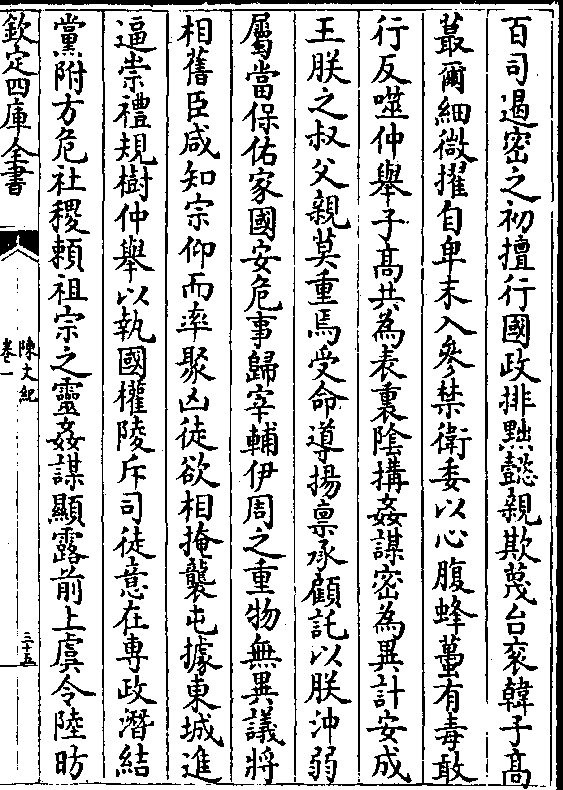 百司遏密之初擅行國政排黜懿親欺蔑台衮韓子髙
蕞爾細微擢自卑末入參禁衛委以心腹蜂蠆有毒敢
行反噬仲舉子髙共為表裏陰搆姦謀密為異計安成
王朕之叔父親莫重焉受命導揚禀承顧託以朕沖弱
屬當保佑家國安危事歸宰輔伊周之重物無異議將
相舊臣咸知宗仰而率聚凶徒欲相掩襲屯據東城進
逼崇禮規樹仲舉以執國權陵斥司徒意在専政潛結
黨附方危社稷頼祖宗之靈姦謀顯露前上虞令陸昉
欽定四庫全書
陳文紀
卷一
三十五